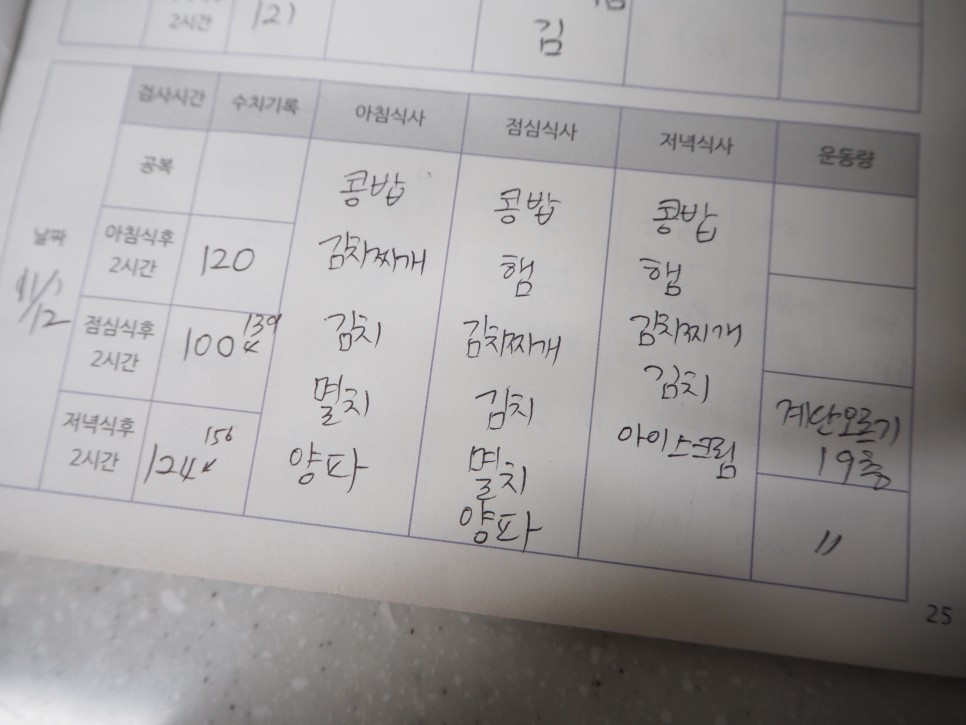 2시간
121
김
검사시간 수치기록 아침식사 점심식사 저녁식사 운동량
날짜
11/12
공복
아침식후
2시간
120
점심식후
2시간
100
139
저녁식후
2시간
124
156
콩밥
김치찌개
김치
멸치
양파
콩밥
햄
김치찌개
김치
멸치
양파
콩밥
햄
김치찌개
김치
아이스크림
계단오르기
19층
〃
25